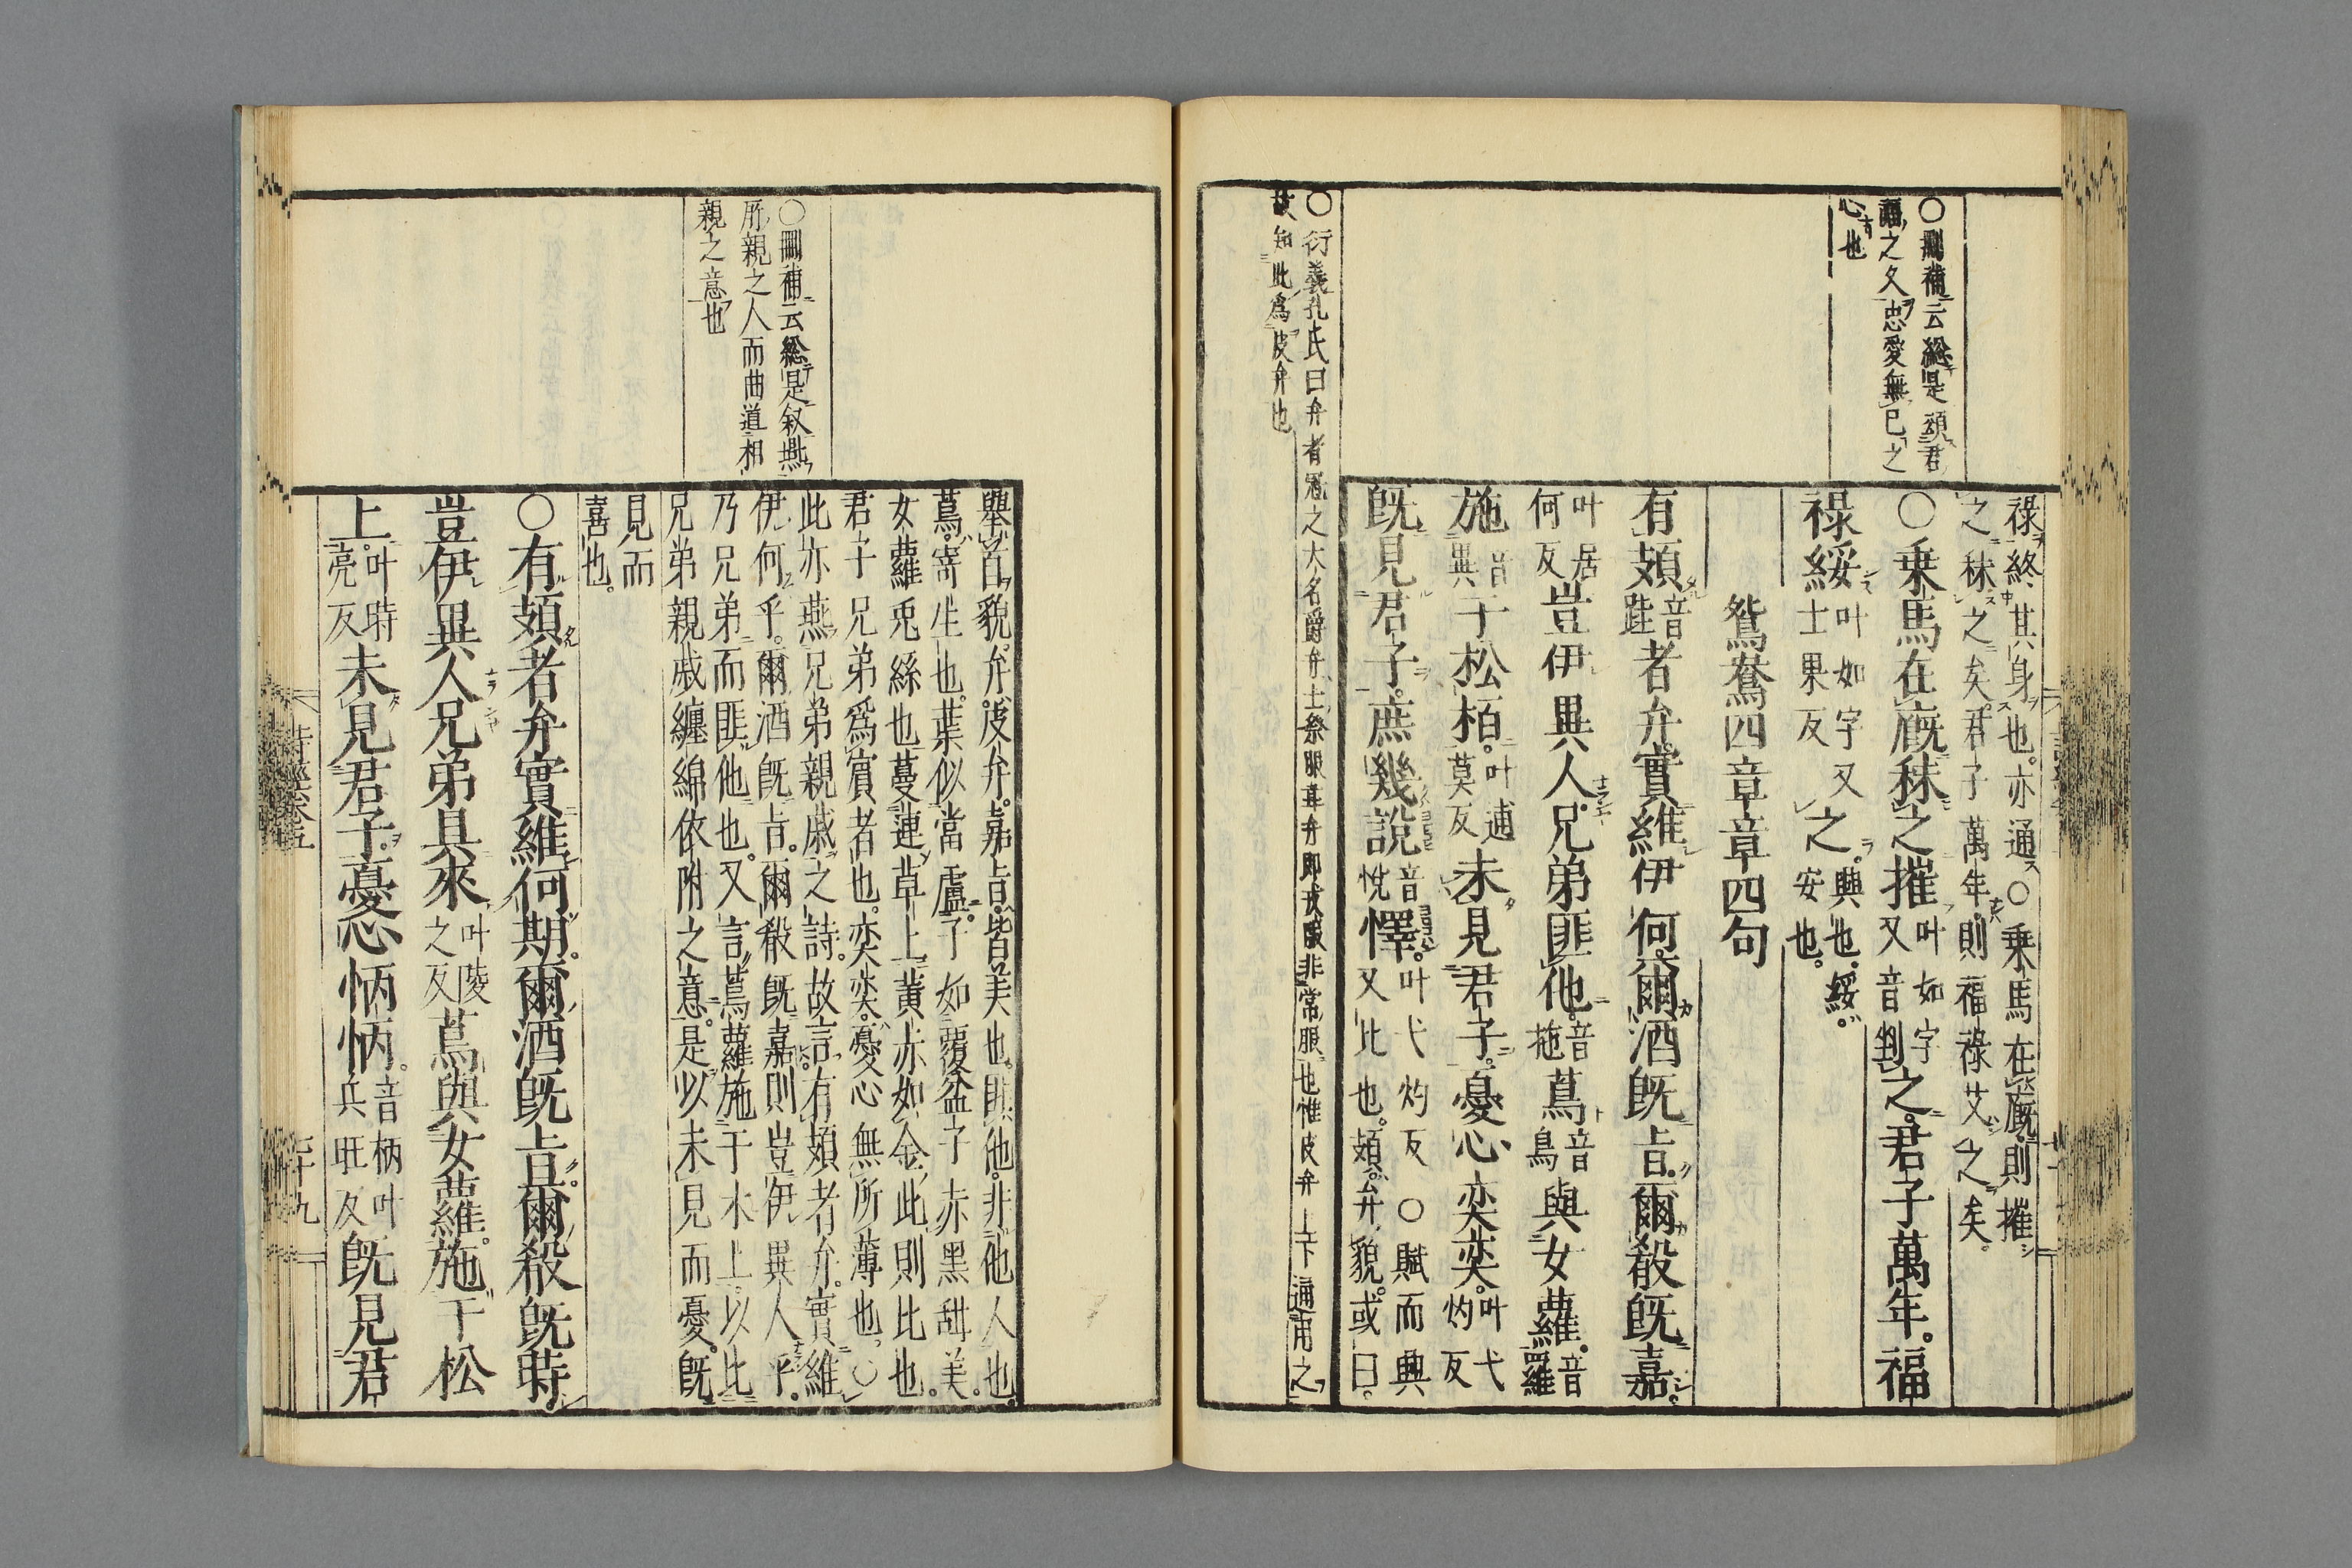 ○刪補云総是頌君
福之久忠愛無已之
心也
祿終其身也。亦通○乗馬在廐則摧
之秣之矣。君子萬年。則福祿艾之矣。
○乗馬在廐。秣之摧叶如字又音剉之。君子萬年。福
祿綏叶如字又士果反之。興也。綏。安也。
鴛鴦四章章四句
有頍音跬者弁。實維伊何。爾酒旣㫖。爾殽旣嘉。
叶居何反豈伊異人。兄弟匪他。音拖蔦音鳥與女蘿。音羅
施音異于松栢。叶逋莫反未見君子。憂心奕奕。叶弋灼反
旣見君子。庶幾說音悅懌。叶弋灼反○賦而興又比也。頍。弁貌。或曰。
○衍義孔氏曰弁者冠之大名爵弁士祭服韋弁即戎服非常服也惟皮弁上下通用之
故知此為皮弁也
○刪補云総是叙燕
所親之人而曲道相
親之意也
舉首貌。弁。皮弁。嘉㫖。皆美也。匪他。非他人也。
蔦。寄生也。葉似當盧。子如覆盆子。赤黒甜美。
女蘿兎絲也。蔓連草上。黄赤如金。此則比也。
君子兄弟爲賓者也。奕奕。憂心無所薄也。○
此亦燕兄弟親戚之詩。故言。有頍者弁。實維
伊何乎。爾酒旣㫖。爾殽旣嘉。則豈伊異人乎。
乃兄弟而匪他也。又言蔦蘿施于木上。以比
兄弟親戚纏綿依附之意。是以未見而憂。旣
見而
喜也。
○有頍者弁實維何期。爾酒旣㫖。爾殽旣時。
豈伊異人兄弟具來叶陵之反蔦與女蘿。施于松
上。叶時亮反未見君子。憂心怲怲。音柄叶兵旺反旣見君
詩經卷五
二十九